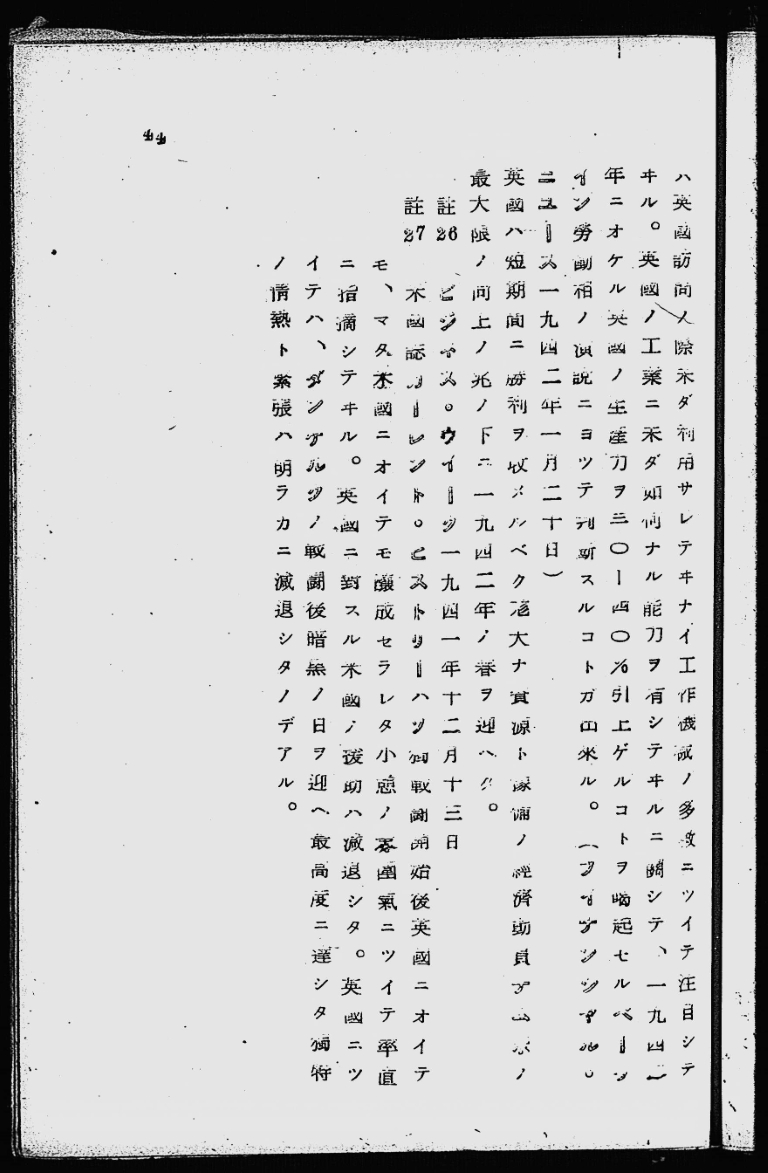 ハ英國訪問ノ際未ダ利用サレテヰナイ工作機械ノ多数ニツイテ注目シテ
ヰル。英國ノ工業ニ未ダ如何ナル能力ヲ有シテヰルニ關シテ、一九四二
年ニオケル英國ノ生産力ヲ三〇ー四〇%引上ゲルコトヲ喝起セルベーヴ
イン勞働相ノ演説ニヨツテ判斷スルコトガ出來ル。(フイナンシヤル。
ニユース一九四二年一月二十日)
英國ハ短期間ニ勝利ヲ收メルベク尨大ナ資源ト豫備ノ經濟動員ノ
最大限ノ向上ノ兆ノ下ニ一九四二年ノ春ヲ迎ヘタ。
註26 ビジネス。ウイーク一九四一年十二月十三日
註27 米國誌カーレント。ヒストリーハソ獨戰鬪開始後英國ニオイテ
モ、マタ米國ニオイテモ釀成セラレタ小憩ノ雰圍氣ニツイテ率直
ニ指摘シテヰル。英國ニ對スル米國ノ援助ハ減退シタ。英國ニツ
イテハ、ダンケルクノ戰鬪後暗黒ノ日ヲ迎ヘ最高度ニ達シタ獨特
ノ情熱ト緊張ハ明ラカニ減退シタノデアル。
44